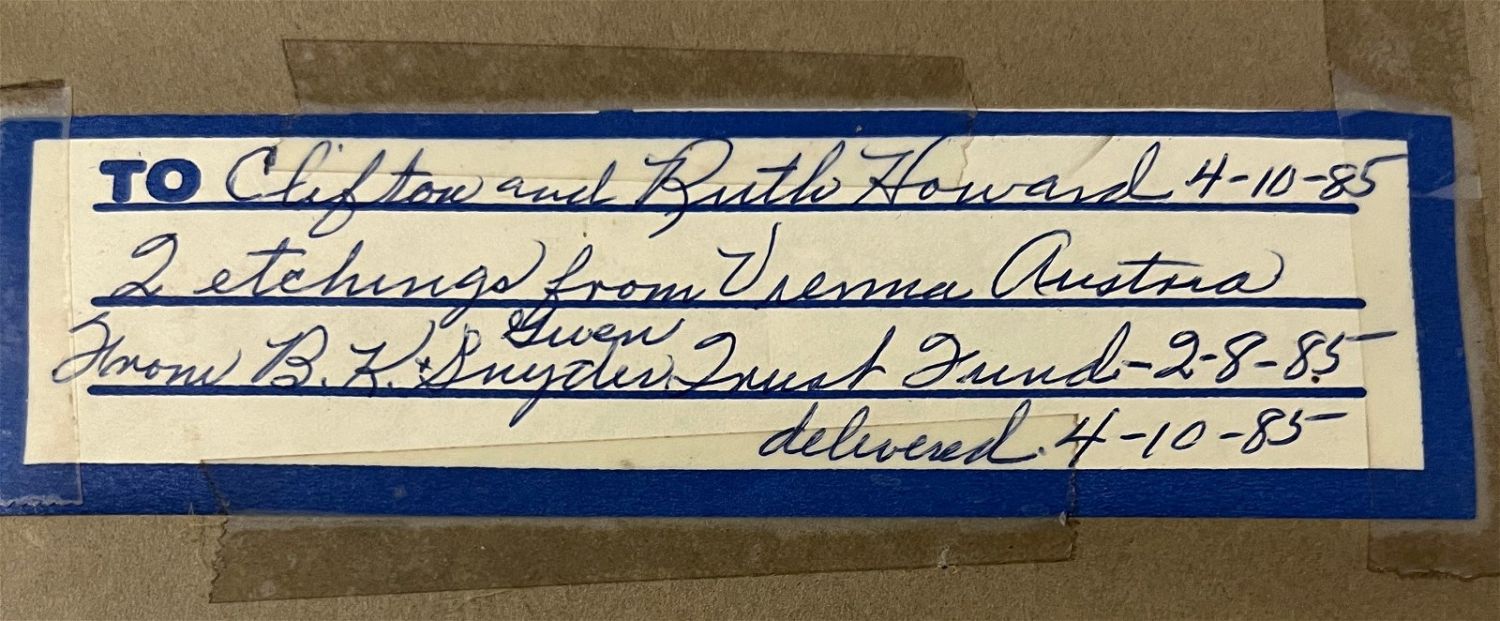 TO Clifton and Ruth Howard 4-10-85
2 etchings from Vienna Austria
Gwen
From B. K. + Snyder Trust Fund - 2-8-85
delivered 4-10-85